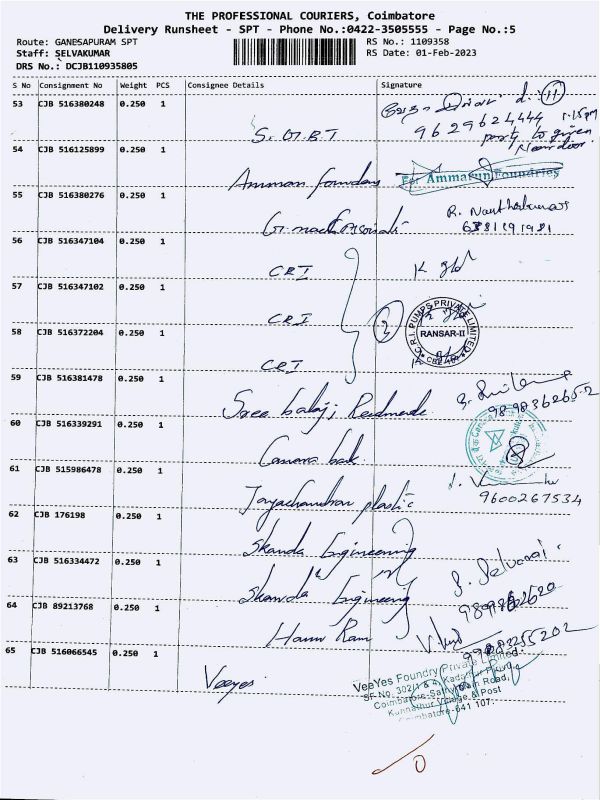 THE PROFESSIONAL COURIERS, Coimbatore
Delivery Runsheet - SPT - Phone No.:0422-3505555 - Page No.:5
Route: GANESAPURAM SPT
RS No.: 1109358
Staff: SELVAKUMAR
RS Date: 01-Feb-2023
DRS No.: DCJB110935805
S No Consignment No Weight PCS Consignee Details Signature
53 CJB 516380248 0.250 1
11
1.15pm
9629624444
S.M.B.T
party to given
54 CJB 516125899 0.250 1
Amman foundry
For Ammarun Foundries
55 CJB 516380276 0.250 1
6381191981
56 CJB 516347104 0.250 1
CRI
57 CJB 516347102 0.250 1
CRI
3
C.R.I. PUMPS PRIVATE LIMITED
RANSAR-II
58 CJB 516372204 0.250 1
CRI
59 CJB 516381478 0.250 1
Sree balaji Readmade
9898362652
60 CJB 516339291 0.250 1
Canara bank
61 CJB 515986478 0.250 1
Jayachandran plastic
9600267534
62 CJB 176198 0.250 1
Skanda Engineering
63 CJB 516334472 0.250 1
Skanda Engineering
S. Selvaraj
64 CJB 89213768 0.250 1
Hann Ram
65 CJB 516066545 0.250 1
Veeyes
VeeYes Foundry Private Limited
SF No. 302/1 & 4, Kadampur Pirivu,
Coimbatore-Sathyamangalam Road,
Kunnathur Village & Post
Coimbatore-641 107.